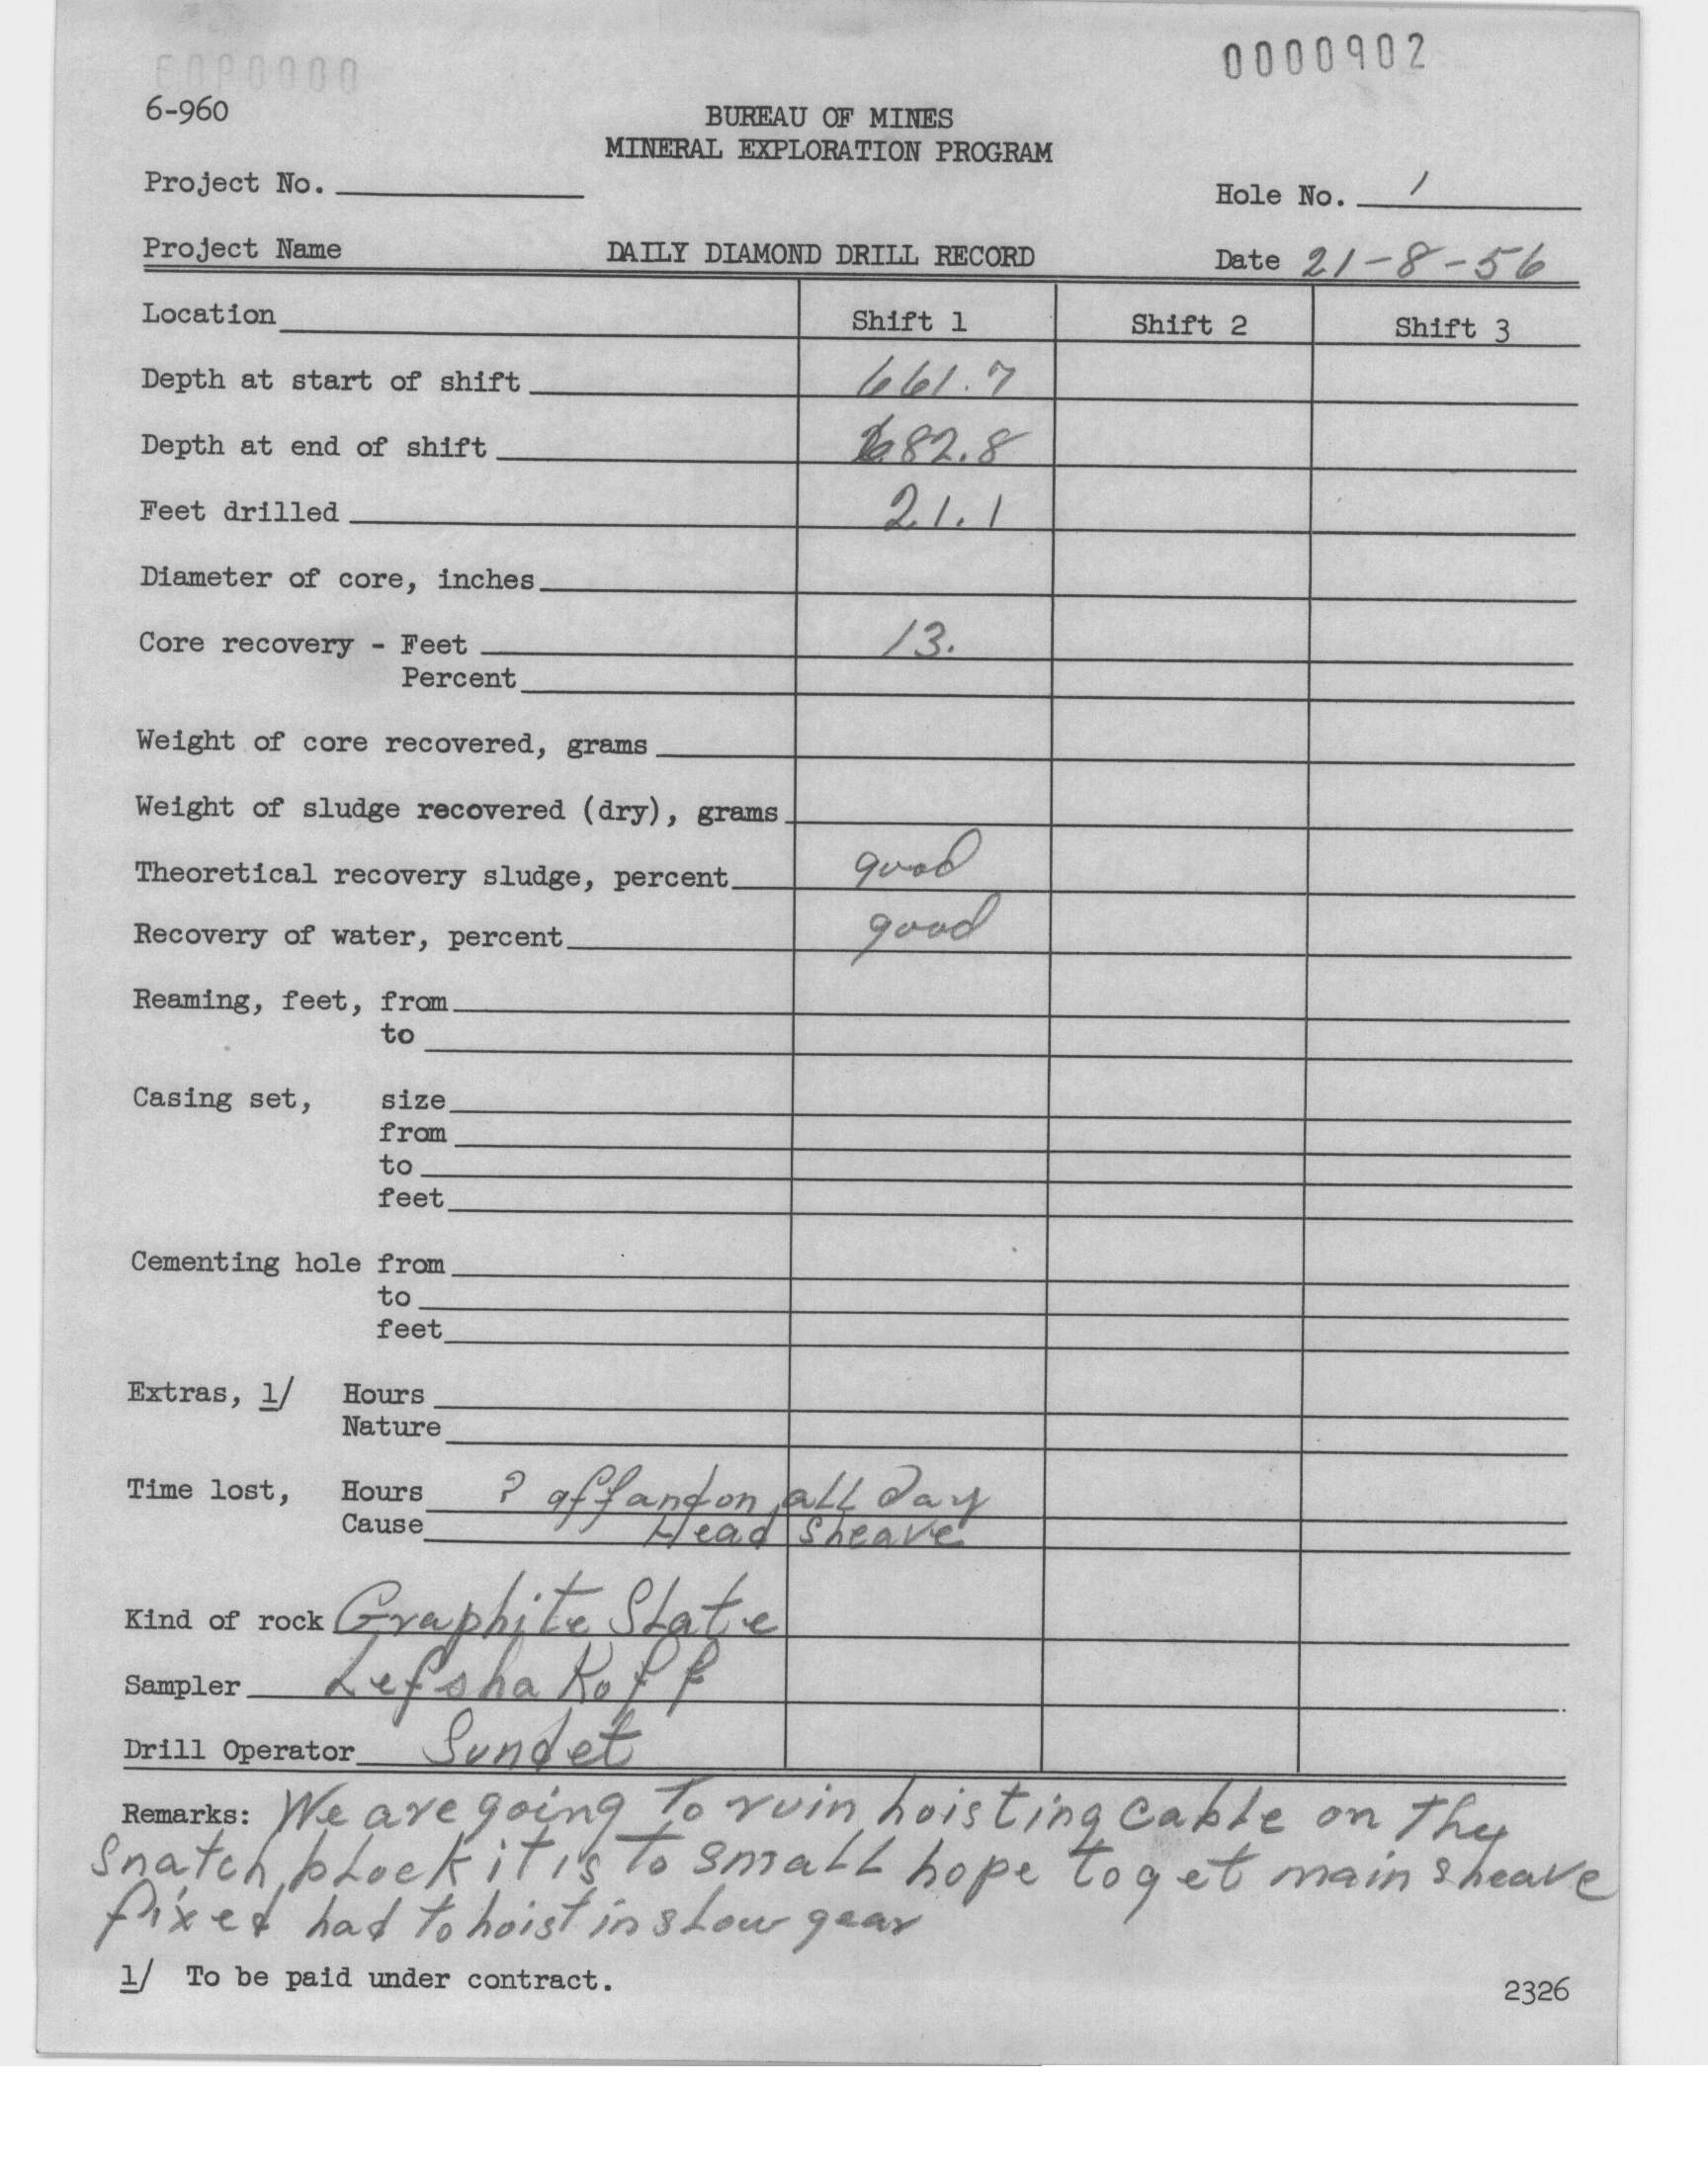 0000902
6-960
BUREAU OF MINES
MINERAL EXPLORATION PROGRAM
Project No.
Hole No. 1
Project Name DAILY DIAMOND DRILL RECORD Date 21-8-56
Location Shift 1 Shift 2 Shift 3
Depth at start of shift 661.7
Depth at end of shift 682.8
Feet drilled 21.1
Diameter of core, inches
Core recovery - Feet 13.
Percent
Weight of core recovered, grams
Weight of sludge recovered (dry), grams
Theoretical recovery sludge, percent good
Recovery of water, percent good
Reaming, feet, from
to
Casing set, size
from
to
feet
Cementing hole from
to
feet
Extras, 1/ Hours
Nature
Time lost, Hours ? off and on all day
Cause Head sheave
Kind of rock Graphite Slate
Sampler Lefshakoff
Drill Operator Sundet
Remarks: We are going to ruin hoisting cable on thy
snatch block it is to small hope to get main sheave
fixed had to hoist in slow gear
1/ To be paid under contract.
2326